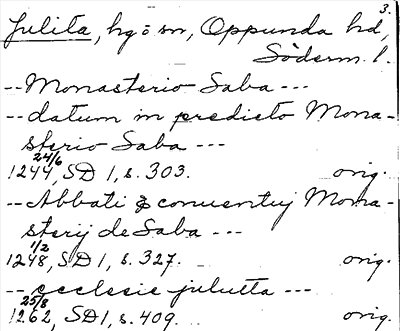 3.
Julita, hg o sn, Oppunda hd,
Söderm. l.
--Monasterio Saba ---
--datum in predicto Mona-
sterio Saba ---
24/6
1244, SD 1, s. 303. orig.
--Abbati & conuentuj Mona-
sterij de Saba ---
1/2
1248, SD 1, s. 327. orig.
-- ecclesie julitta ---
25/8
1262, SD 1, s. 409. orig.